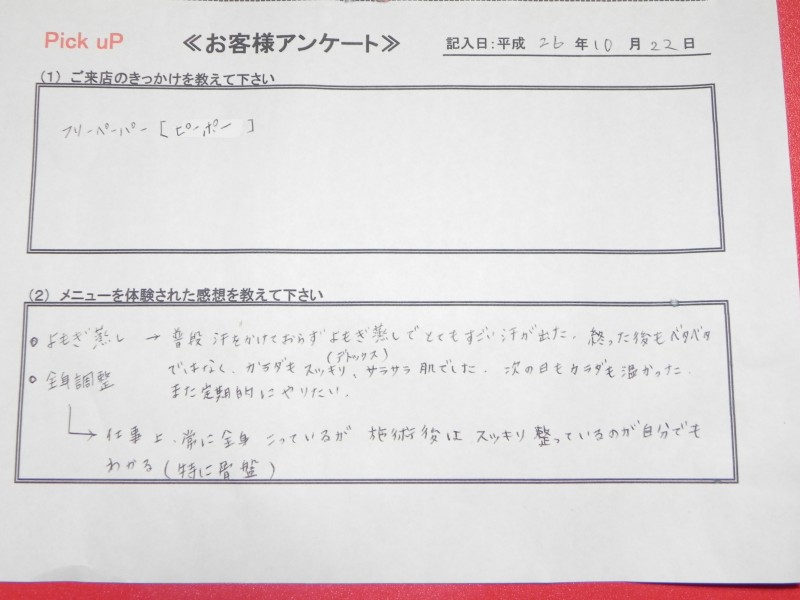 Pick uP
≪お客様アンケート≫
記入日:平成 26 年 10 月 22 日
(1) ご来店のきっかけを教えて下さい
フリーペーパー [ピンポー]
(2) メニューを体験された感想を教えて下さい
○ よもぎ蒸し → 普段 汗をかけておらず よもぎ蒸しで とてもすごい 汗が出た. 終った後も ベタベタ
ではなく、カラダも スッキリ(デトックス)、サラサラ 肌でした. 次の日も カラダも 温かった.
○ 全身調整
また定期的に やりたい.
→ 仕事上、常に 全身 こっているが 施術後は スッキリ 整っているのが 自分でも
わかる (特に 骨盤)